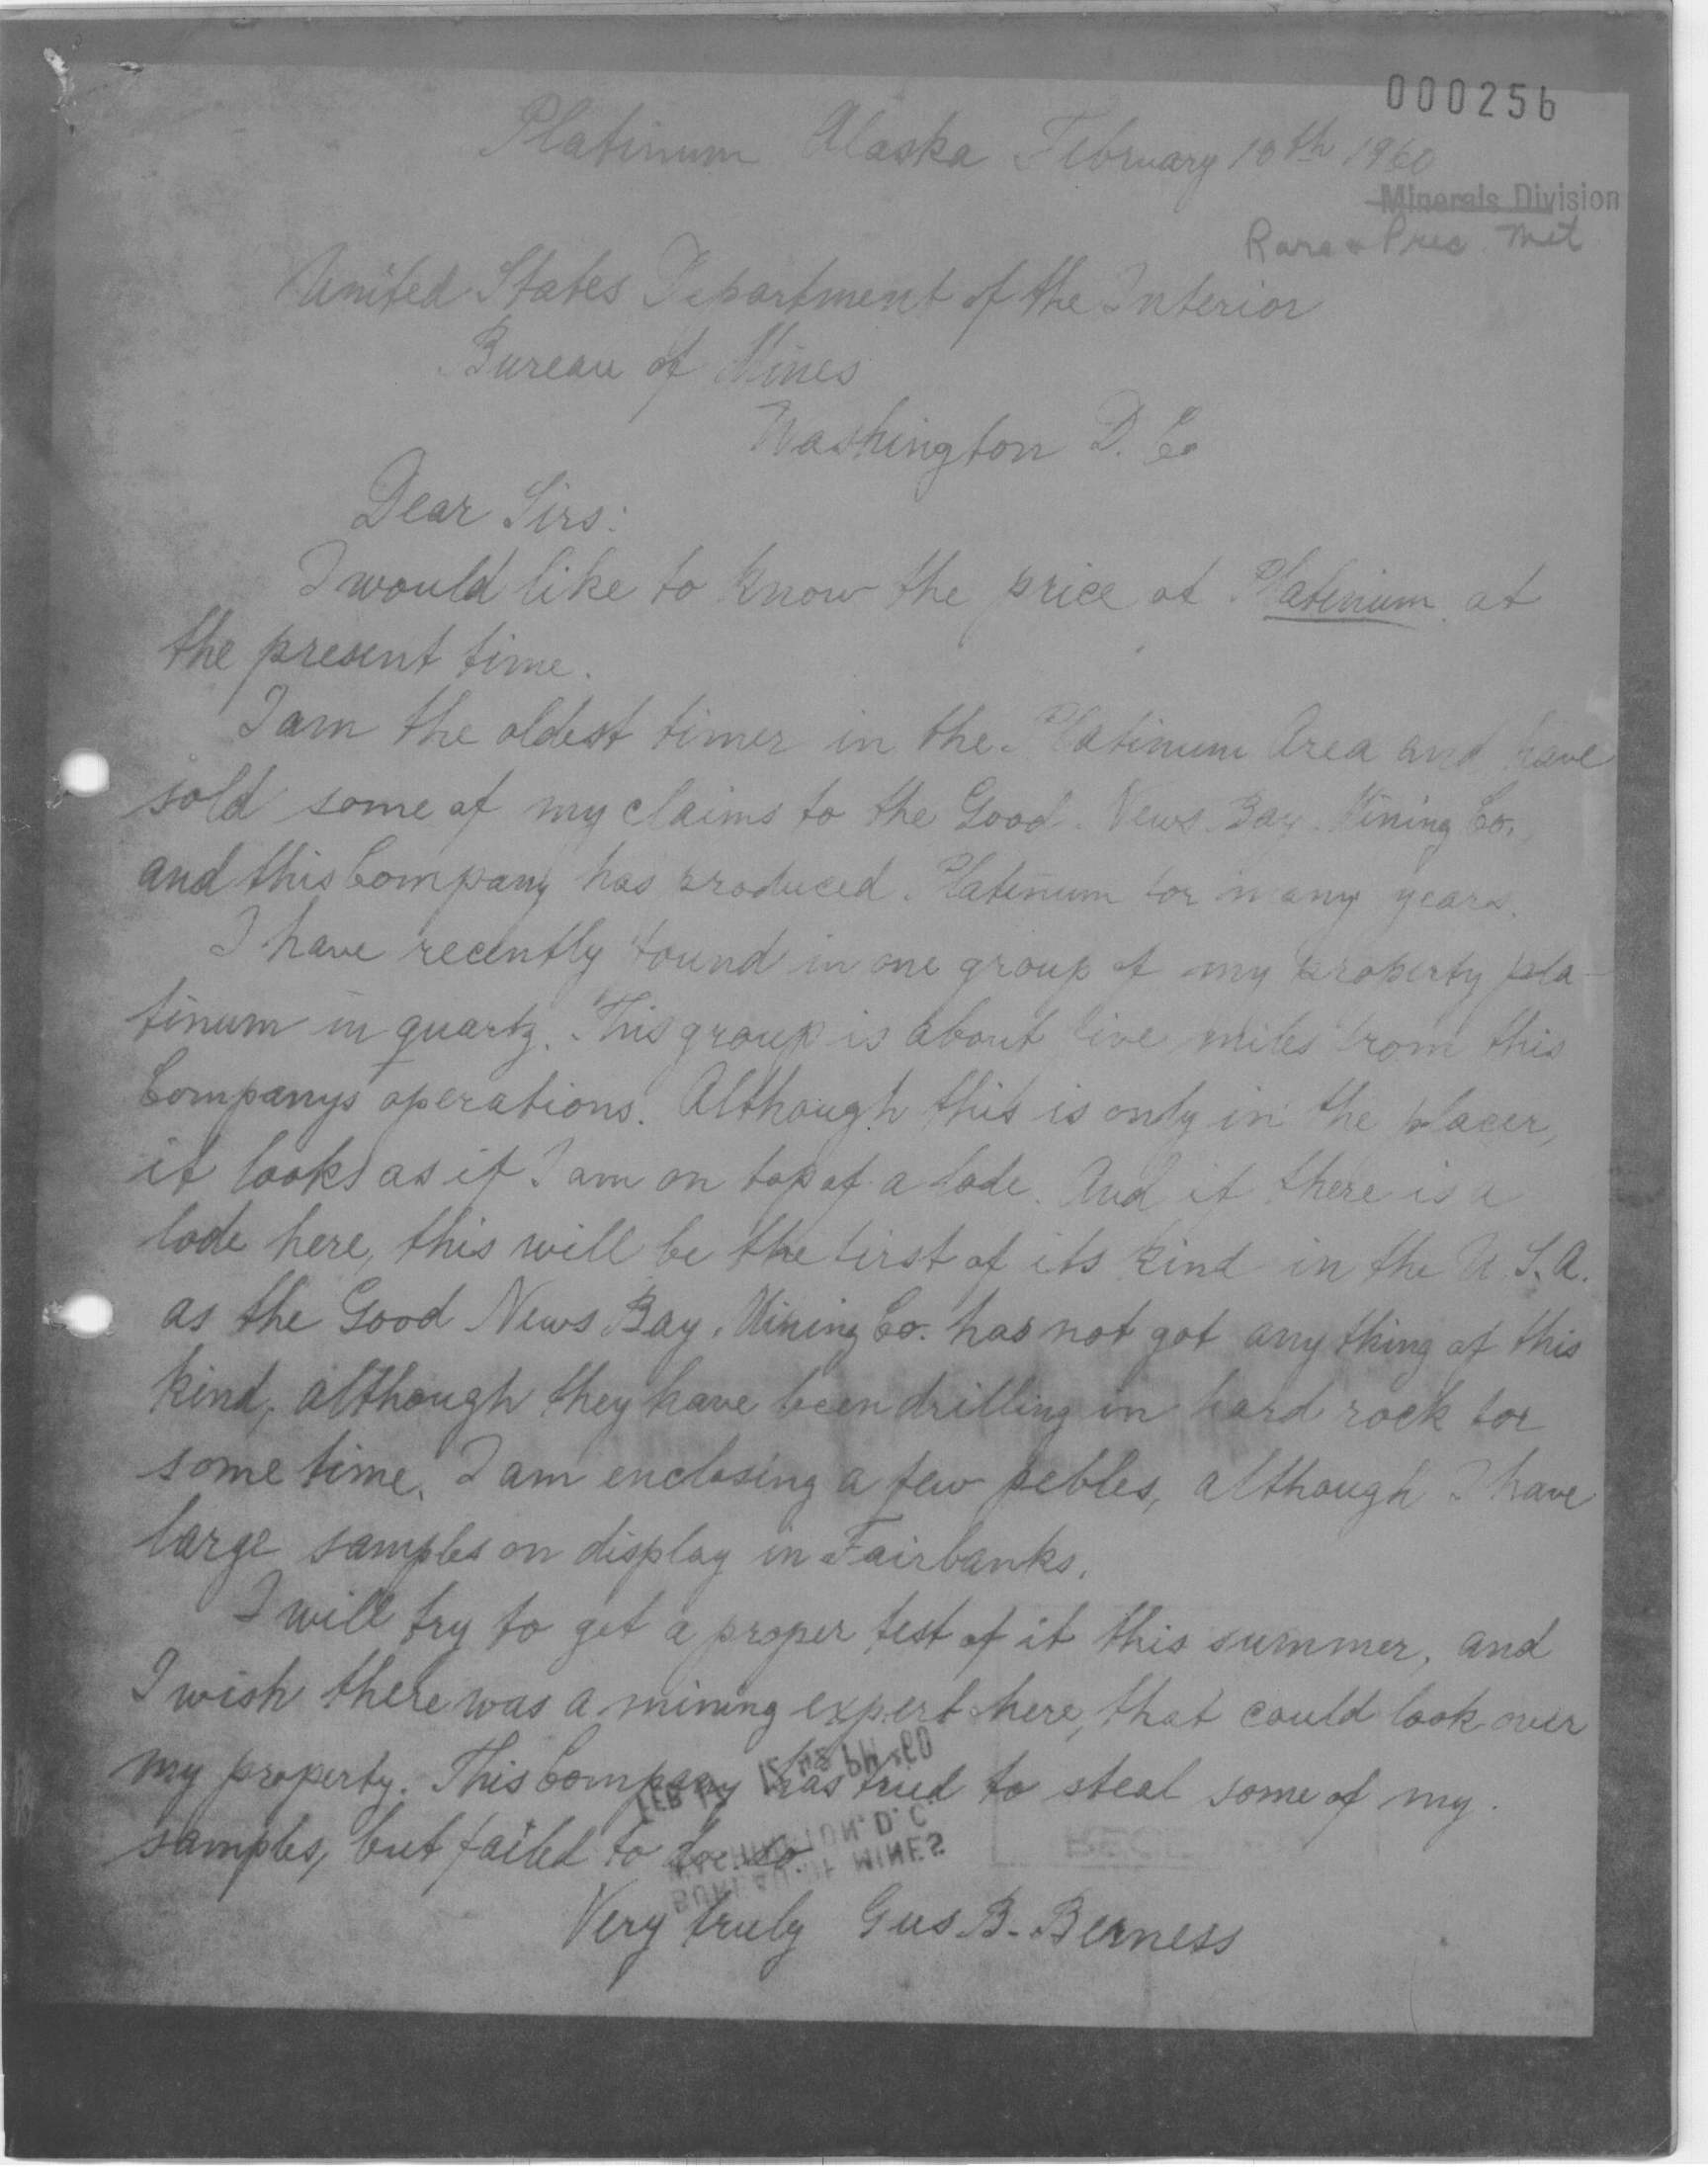 000256
Platinum Alaska February 10th 1960
Minerals Division
Rare & Prec. Met
United States Department of the Interior
Bureau of Mines
Washington D. C.
Dear Sirs:
I would like to know the price of Platinium at
the present time.
I am the oldest timer in the Platinum Area and have
sold some of my claims to the Good News Bay Mining Co.
and this Company has produced Platinum for many years.
I have recently found in one group of my property pla-
tinum in quartz. This group is about five miles from this
Companys operations. Although this is only in the placer,
it looks as if I am on top of a lode. And if there is a
lode here, this will be the first of its kind in the U.S.A.
as the Good News Bay Mining Co. has not got any thing of this
kind, although they have been drilling in hard rock for
some time. I am enclosing a few pebles, although I have
large samples on display in Fairbanks.
I will try to get a proper test of it this summer, and
I wish there was a mining expert here, that could look over
my property. This Company has tried to steal some of my
samples, but failed to do so
Very truly Gus B. Berness